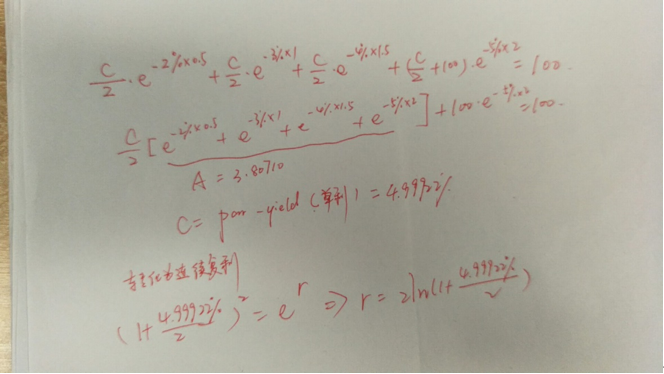 C/2 · e^-2%×0.5 + C/2 · e^-3%×1 + C/2 · e^-4%×1.5 + (C/2 + 100) · e^-5%×2 = 100.
C/2 [e^-2%×0.5 + e^-3%×1 + e^-4%×1.5 + e^-5%×2] + 100 · e^-5%×2 = 100.
A = 3.80710
C = par-yield (单利) = 4.99922%
转化为连续复利
(1 + 4.99922%/2)^2 = e^r ⇒ r = 2ln(1 + 4.99922%/2)